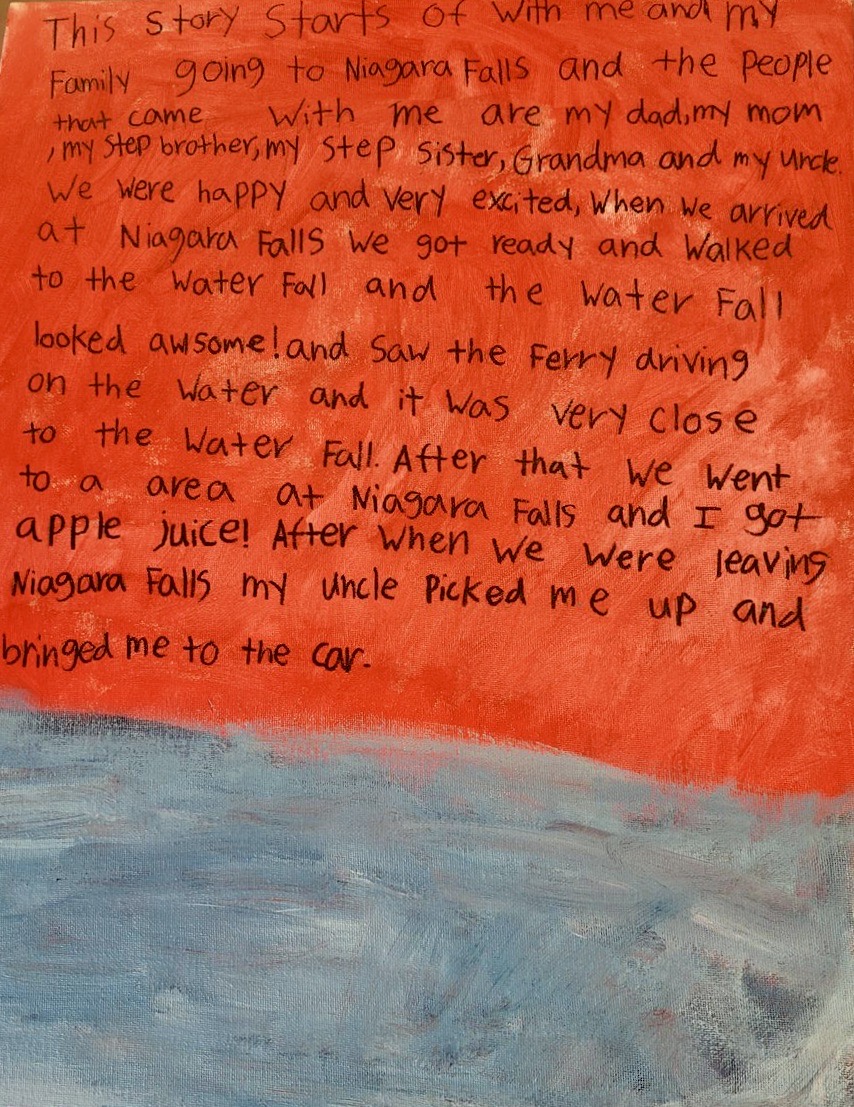 This story starts of with me and my
Family going to Niagara Falls and the people
that came with me are my dad, my mom
, my step brother, my step sister, Grandma and my uncle.
We were happy and very excited, When we arrived
at Niagara Falls we got ready and walked
to the Water Fall and the Water Fall
looked awsome! and saw the Ferry driving
on the water and it was very close
to the water Fall. After that we went
to a area at Niagara Falls and I got
apple juice! After when we were leaving
Niagara Falls my uncle picked me up and
bringed me to the car.